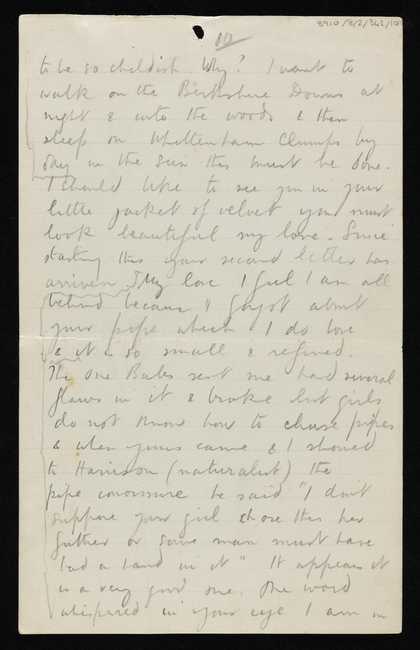 8910/3/2/342/10
to be so childish. Why? I want to
walk on the Berkshire Downs at
night & into the woods & then
sleep on Whittenham Clumps by
day in the sun this must be done.
I should like to see you in your
little jacket of velvet you must
look beautiful my love. Since
starting this your second letter has
arriven My love I feel I am all
behind because I forgot about
your pipe which I do love
& it is so small & refined.
The one Babs sent me had several
flaws in it & broke but girls
do not know how to chuse pipes
& when yours came & I showed
to Harrison (naturalist) the
pipe connoisure he said "I don't
suppose your girl chose this her
father or some man must have
had a hand in it" It appears it
is a very good one. One word
whispered in your eye I am in